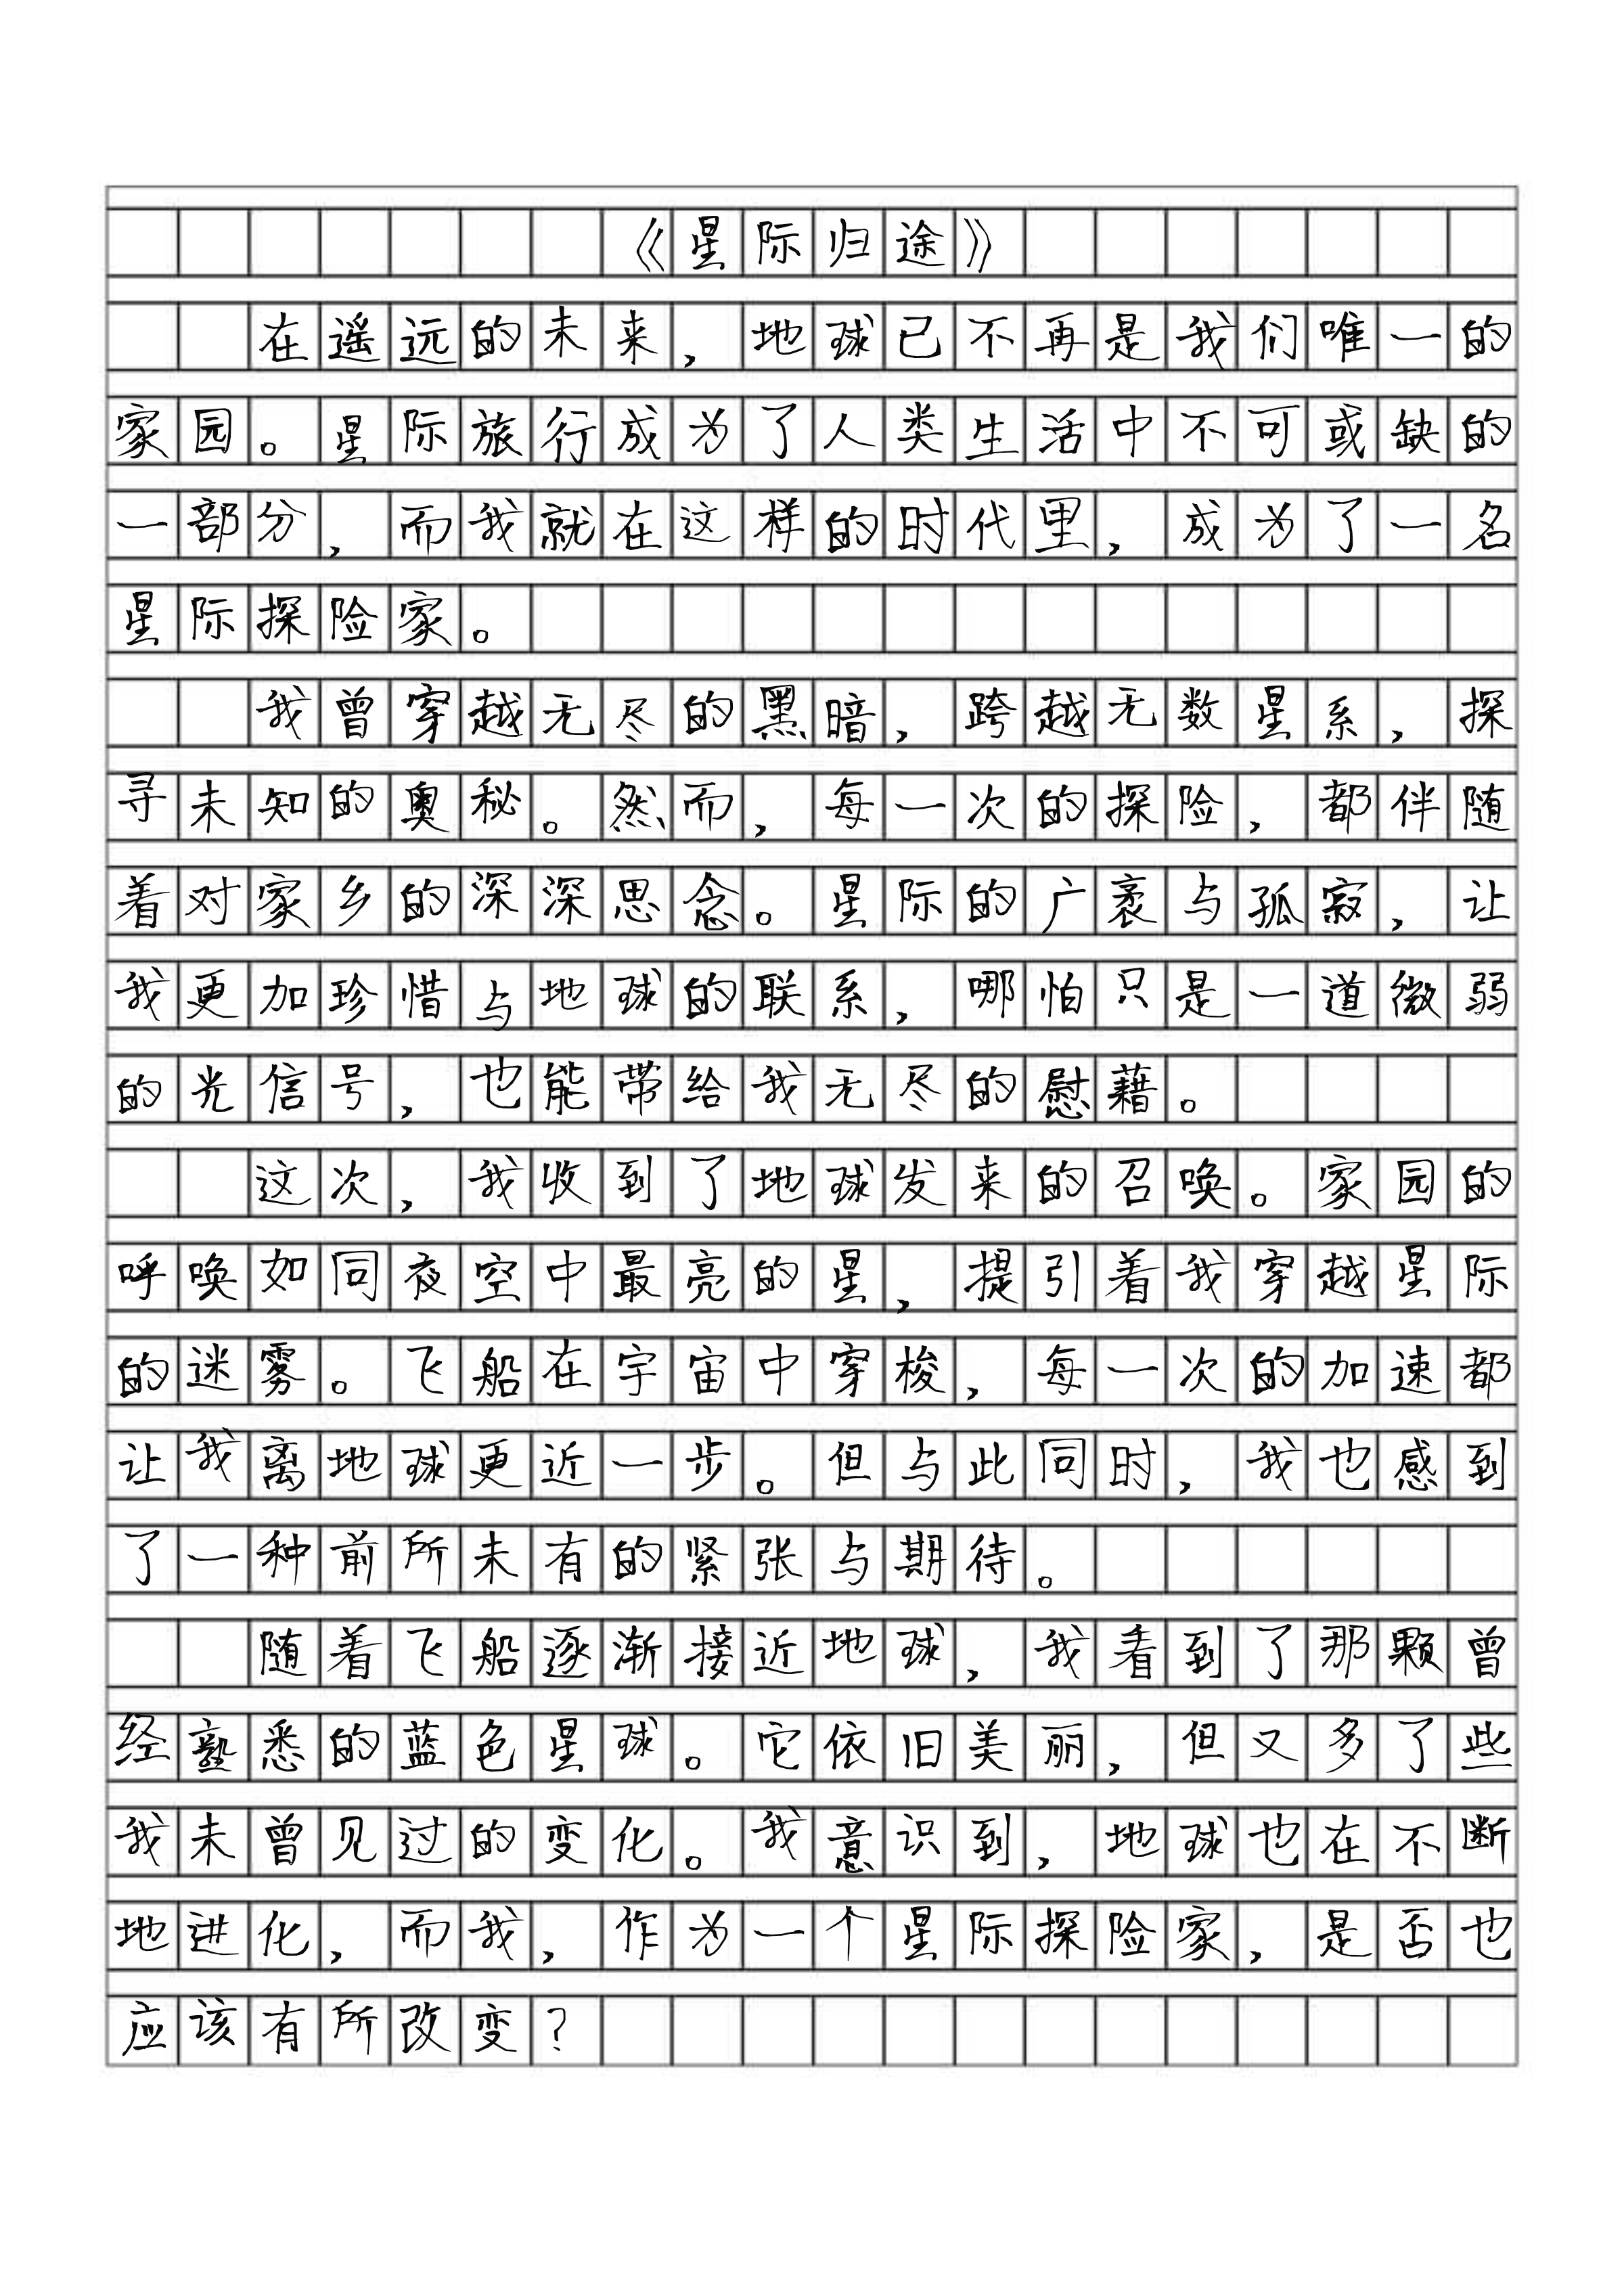 《星际归途》
在遥远的未来，地球已不再是我们唯一的
家园。星际旅行成为了人类生活中不可或缺的
一部分，而我就在这样的时代里，成为了一名
星际探险家。
我曾穿越无尽的黑暗，跨越无数星系，探
寻未知的奥秘。然而，每一次的探险，都伴随
着对家乡的深深思念。星际的广袤与孤寂，让
我更加珍惜与地球的联系，哪怕只是一道微弱
的光信号，也能带给我无尽的慰藉。
这次，我收到了地球发来的召唤。家园的
呼唤如同夜空中最亮的星，提引着我穿越星际
的迷雾。飞船在宇宙中穿梭，每一次的加速都
让我离地球更近一步。但与此同时，我也感到
了一种前所未有的紧张与期待。
随着飞船逐渐接近地球，我看到了那颗曾
经熟悉的蓝色星球。它依旧美丽，但又多了些
我未曾见过的变化。我意识到，地球也在不断
地进化，而我，作为一个星际探险家，是否也
应该有所改变？